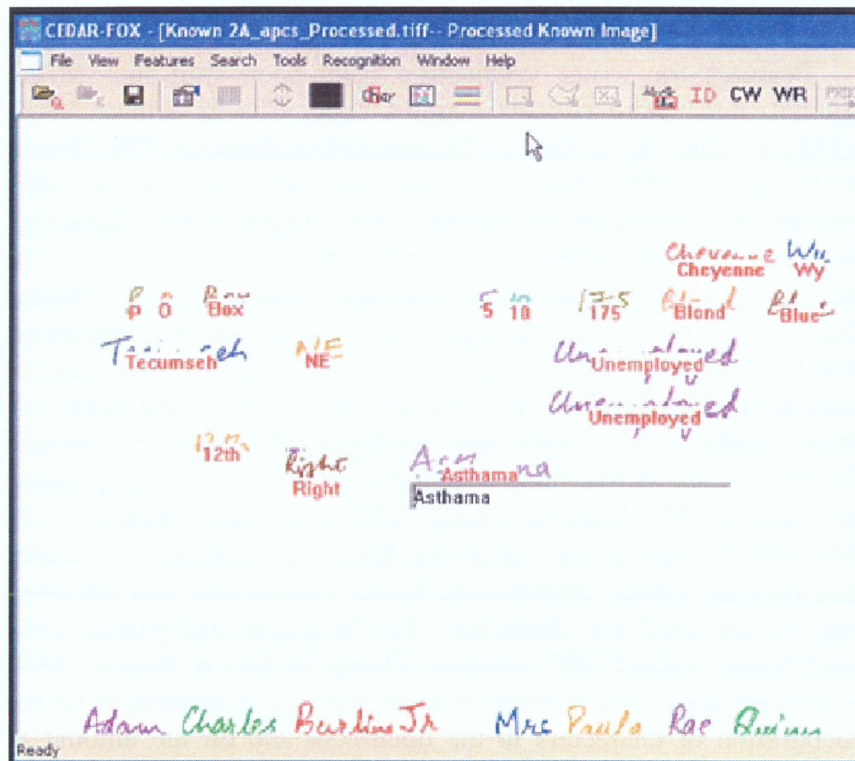 CEDAR-FOX - [Known 2A_apcs_Processed.tiff-- Processed Known Image]
File View Features Search Tools Recognition Window Help
Char ID CW WR
Cheyenne
Cheyenne Wy
P O Box 5 10 175 Blond Blue
P O Box 5 10 175 Blond Blue
Tecumseh NE Unemployed
Tecumseh NE Unemployed
Unemployed
Unemployed
12th
12th Right
Right
Asthama
Asthama
Adam Charles Burlin Jr Mrs Paula Rae Quinn
Ready